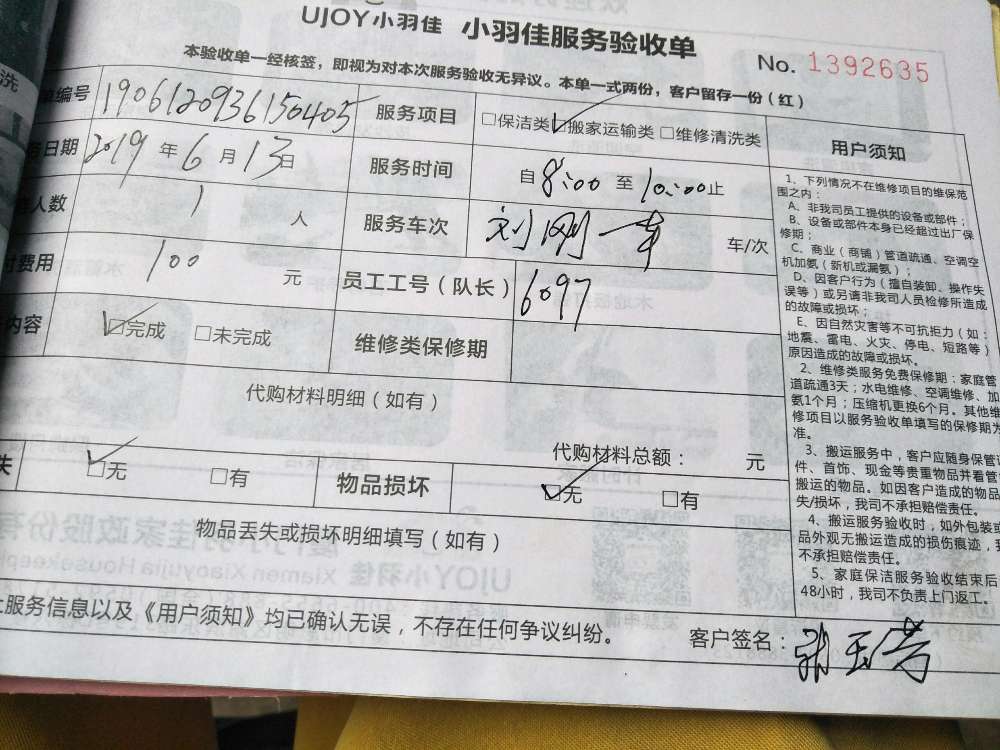 UJOY小羽佳 小羽佳服务验收单
No. 1392635
本验收单一经核签，即视为对本次服务验收无异议。本单一式两份，客户留存一份（红）
单编号 1906120936150405 服务项目 □保洁类 ☑搬家运输类 □维修清洗类
日期 2019 年 6 月 13 日 服务时间 自 8:00 至 10:00 止
人数 1 人 服务车次 车/次
费用 100 元 员工工号（队长） 6097
内容 ☑完成 □未完成 维修类保修期
代购材料明细（如有）
代购材料总额： 元
失 ☑无 □有 物品损坏 ☑无 □有
物品丢失或损坏明细填写（如有）
上服务信息以及《用户须知》均已确认无误，不存在任何争议纠纷。
客户签名：张玉芳
用户须知
1、下列情况不在维修项目的维保范
围之内：
A、非我司员工提供的设备或部件；
B、设备或部件本身已经超过出厂保
修期；
C、商业（商铺）管道疏通、空调空
机加氨（新机或漏氨）；
D、因客户行为（擅自装卸、操作失
误等）或另请非我司人员检修所造成
的故障或损坏；
E、因自然灾害等不可抗拒力（如：
地震、雷电、火灾、停电、短路等）
原因造成的故障或损坏。
2、维修类服务免费保修期：家庭管
道疏通3天；水电维修、空调维修、加
氨1个月；压缩机更换6个月。其他维
修项目以服务验收单填写的保修期为
准。
3、搬运服务中，客户应随身保管
件、首饰、现金等贵重物品并看管
搬运的物品。如因客户造成的物品
失/损坏，我司不承担赔偿责任。
4、搬运服务验收时，如外包装或
品外观无搬运造成的损伤痕迹，
不承担赔偿责任。
5、家庭保洁服务验收结束后
48小时，我司不负责上门返工。